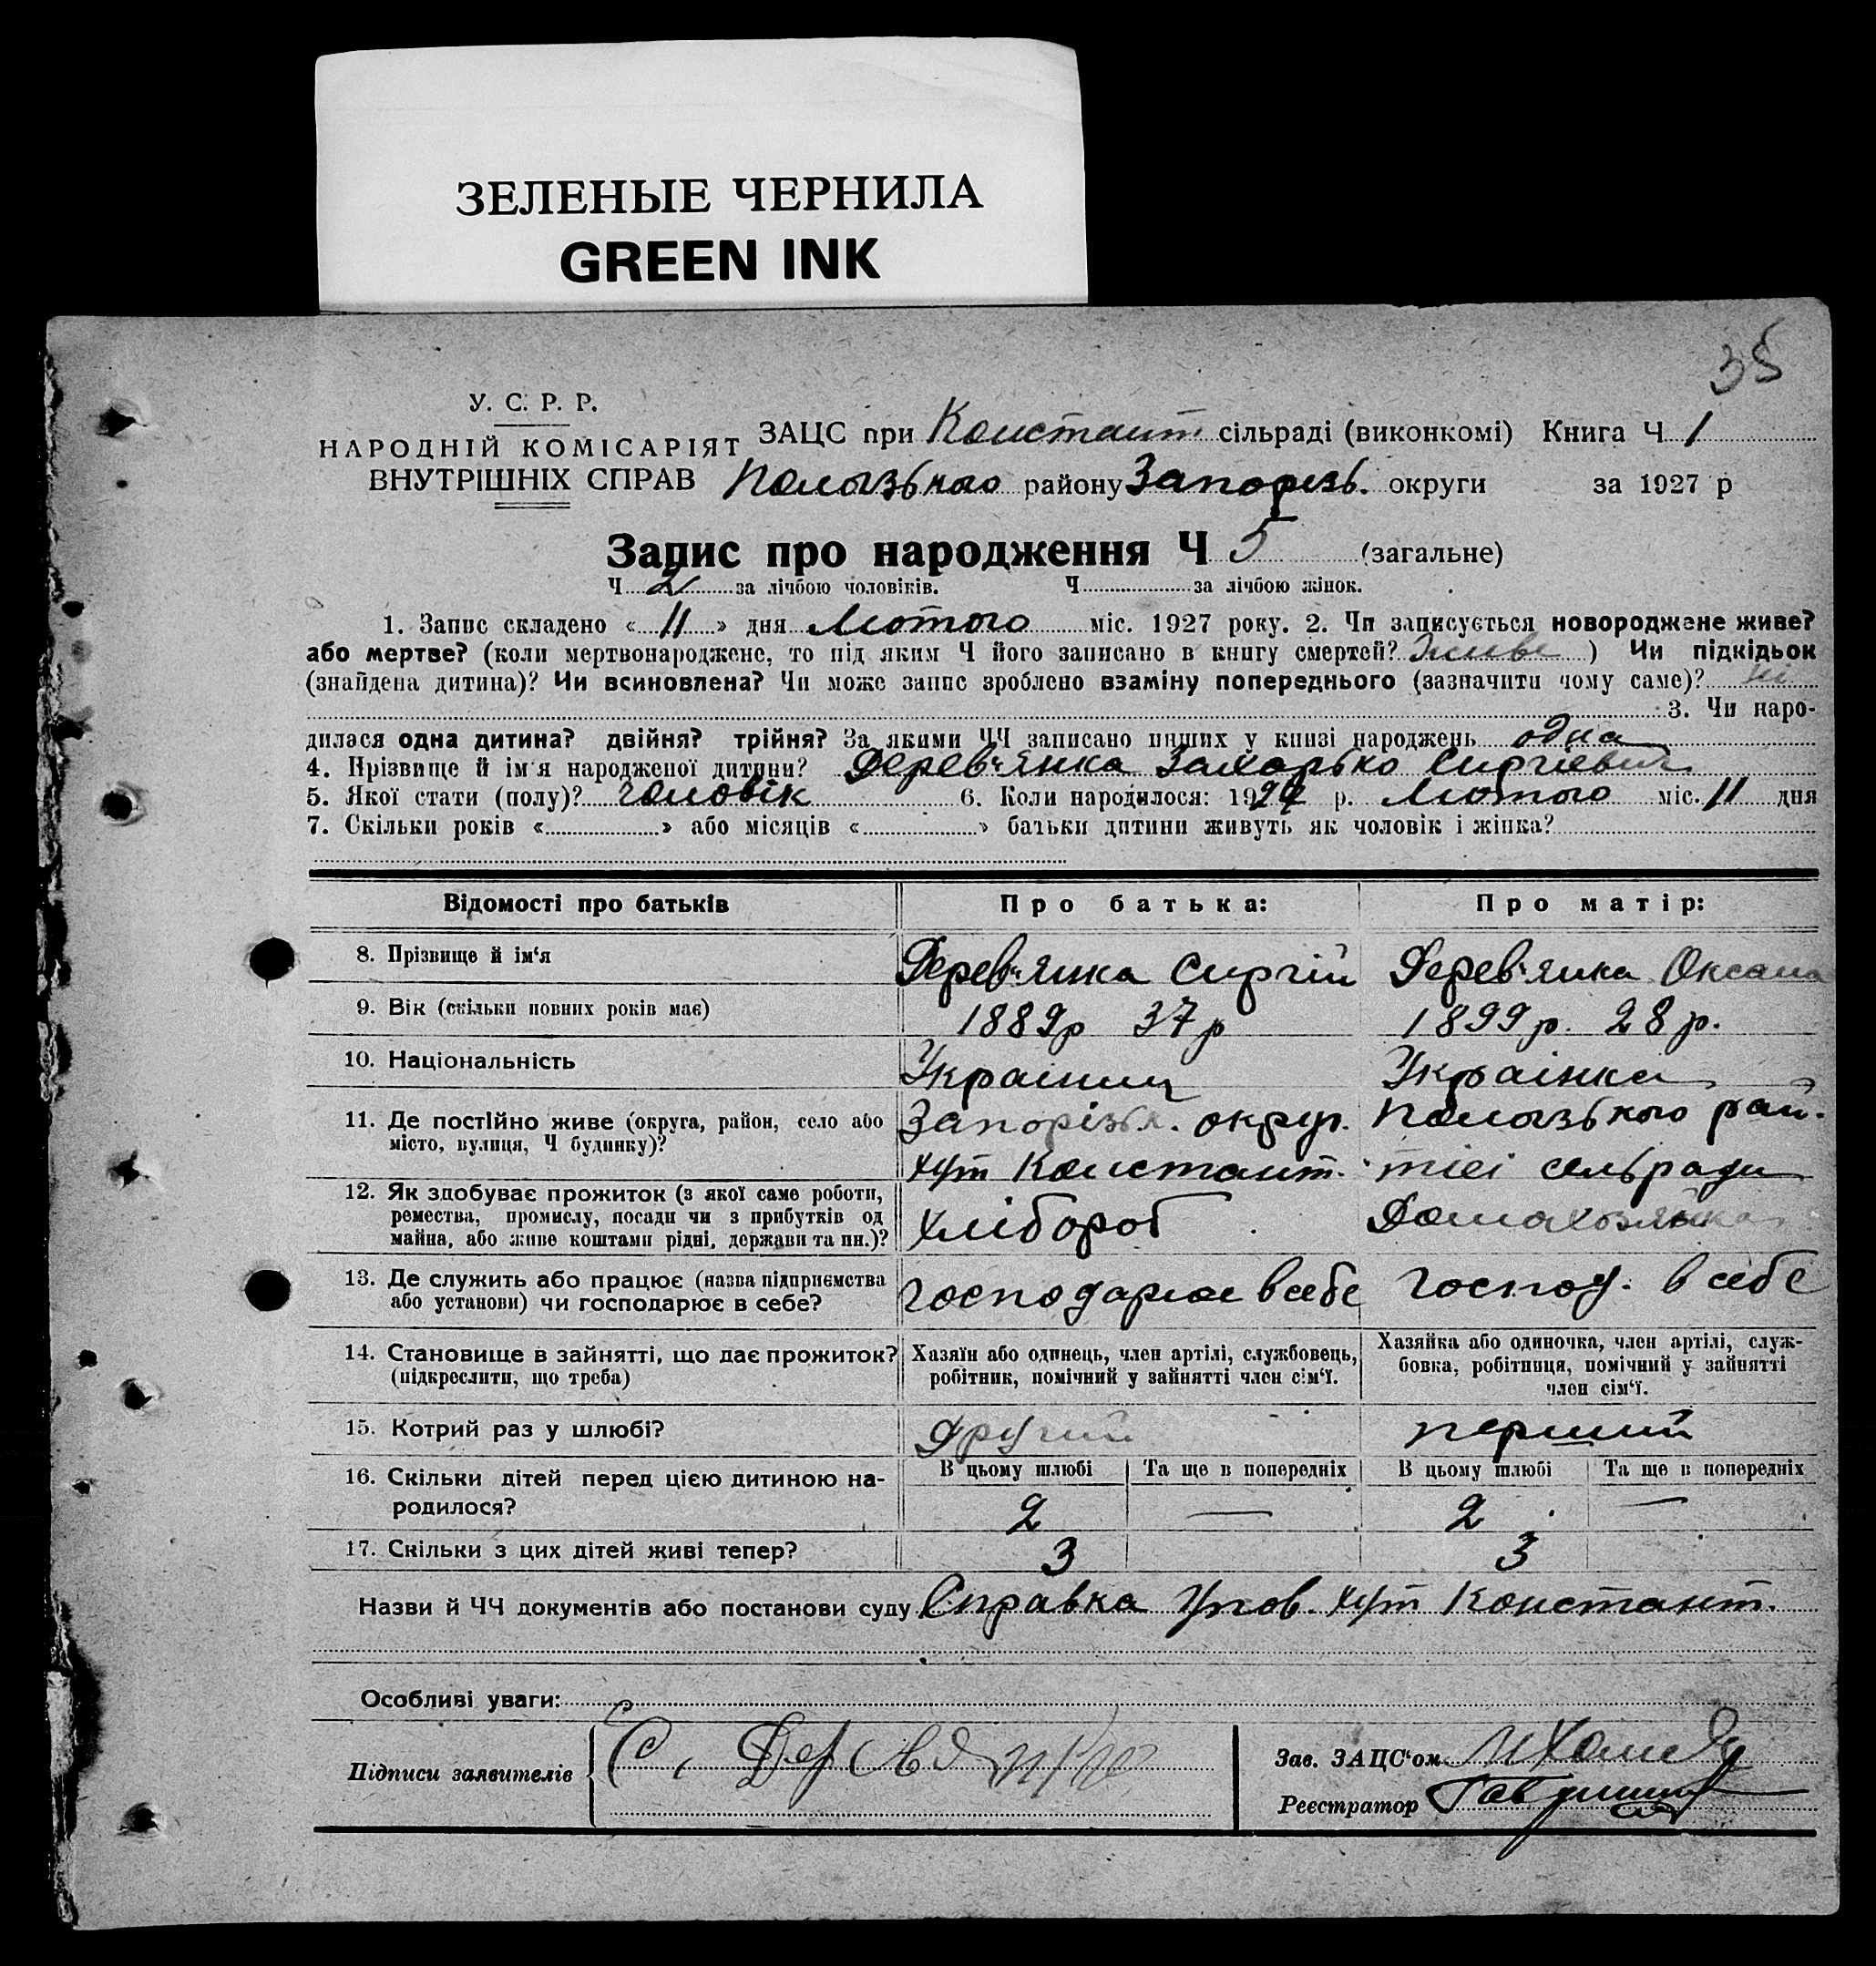 ЗЕЛЕНЫЕ ЧЕРНИЛА
GREEN INK
35
У. С. Р. Р.
НАРОДНІЙ КОМІСАРІЯТ
ВНУТРІШНІХ СПРАВ
ЗАЦС при Констант. сільраді (виконкомі) Книга Ч 1
Пологзького району Запорізь. округи за 1927 р
Запис про народження Ч 5 (загальне)
Ч 2 за лічбою чоловіків. Ч за лічбою жінок.
1. Запис складено « 11 » дня Лютого міс. 1927 року. 2. Чи записується новороджене живе?
або мертве? (коли мертвонароджене, то під яким Ч його записано в книгу смертей? Живе ) Чи підкідьок
(знайдена дитина)? Чи всиновлена? Чи може запис зроблено взаміну попереднього (зазначити чому саме)? Ні
3. Чи наро-
дилася одна дитина? двійня? трійня? За якими ЧЧ записано инших у книзі народжень одна
4. Прізвище й ім'я народженої дитини? Дерев'янка Захарько Сиргієвич
5. Якої стати (полу)? чоловік 6. Коли народилося: 1927 р. Лютого міс. 11 дня
7. Скільки років « » або місяців « » батьки дитини живуть як чоловік і жінка?
Відомості про батьків Про батька: Про матір:
8. Прізвище й ім'я Дерев'янка Сиргій Дерев'янка Оксана
9. Вік (скільки повних років має) 1889р 37р 1899р. 28р.
10. Національність Українец Українка
11. Де постійно живе (округа, район, село або Запорізьк. округ. Пологзького рай.
місто, вулиця, Ч будинку)? хут Констант. тієі сельради
12. Як здобуває прожиток (з якої саме роботи,
ремества, промислу, посади чи з прибутків од
майна, або живе коштами рідні, держави та ин.)? хлібороб Домахозяйка
13. Де служить або працює (назва підприємства
або установи) чи господарює в себе? господарює в себе господ. в себе
14. Становище в зайнятті, що дає прожиток?
(підкреслити, що треба)
Хазяїн або одинець, член артілі, службовець,
робітник, помічний у зайнятті член сім'ї.
Хазяйка або одиночка, член артілі, служ-
бовка, робітниця, помічний у зайнятті
член сім'ї.
15. Котрий раз у шлюбі? Другий перший
16. Скільки дітей перед цією дитиною на-
родилося?
В цьому шлюбі Та ще в попередніх В цьому шлюбі Та ще в попередніх
2 — 2 —
17. Скільки з цих дітей живі тепер? 3 3
Назви й ЧЧ документів або постанови суду Справка Упов. хут Констант.
Особливі уваги:
Підписи заявителів С. Деревянко
Зав. ЗАЦС'ом
Реєстратор